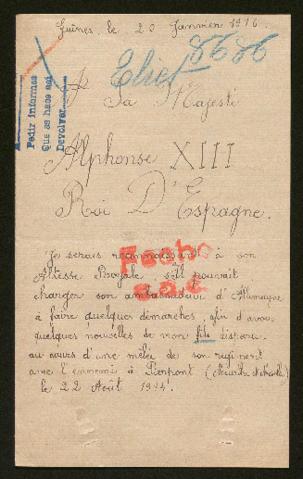 Guînes, le 20 Janvier 1916.
8686
Eliet
Pedir informes
Que se hace así
Devolver
A
Sa Majesté
Alphonse XIII
Roi D'Espagne.
Je serais reconnaissant à son
Altesse Royale, s'Il pouvait
charger son ambassadeur d'Allemagne
à faire quelques démarches, afin d'avoir
quelques nouvelles de mon fils disparu
au cours d'une mêlée de son régiment
avec l'ennemi à Pierrepont (Meurthe et Moselle)
le 22 Août 1914.
Fecho